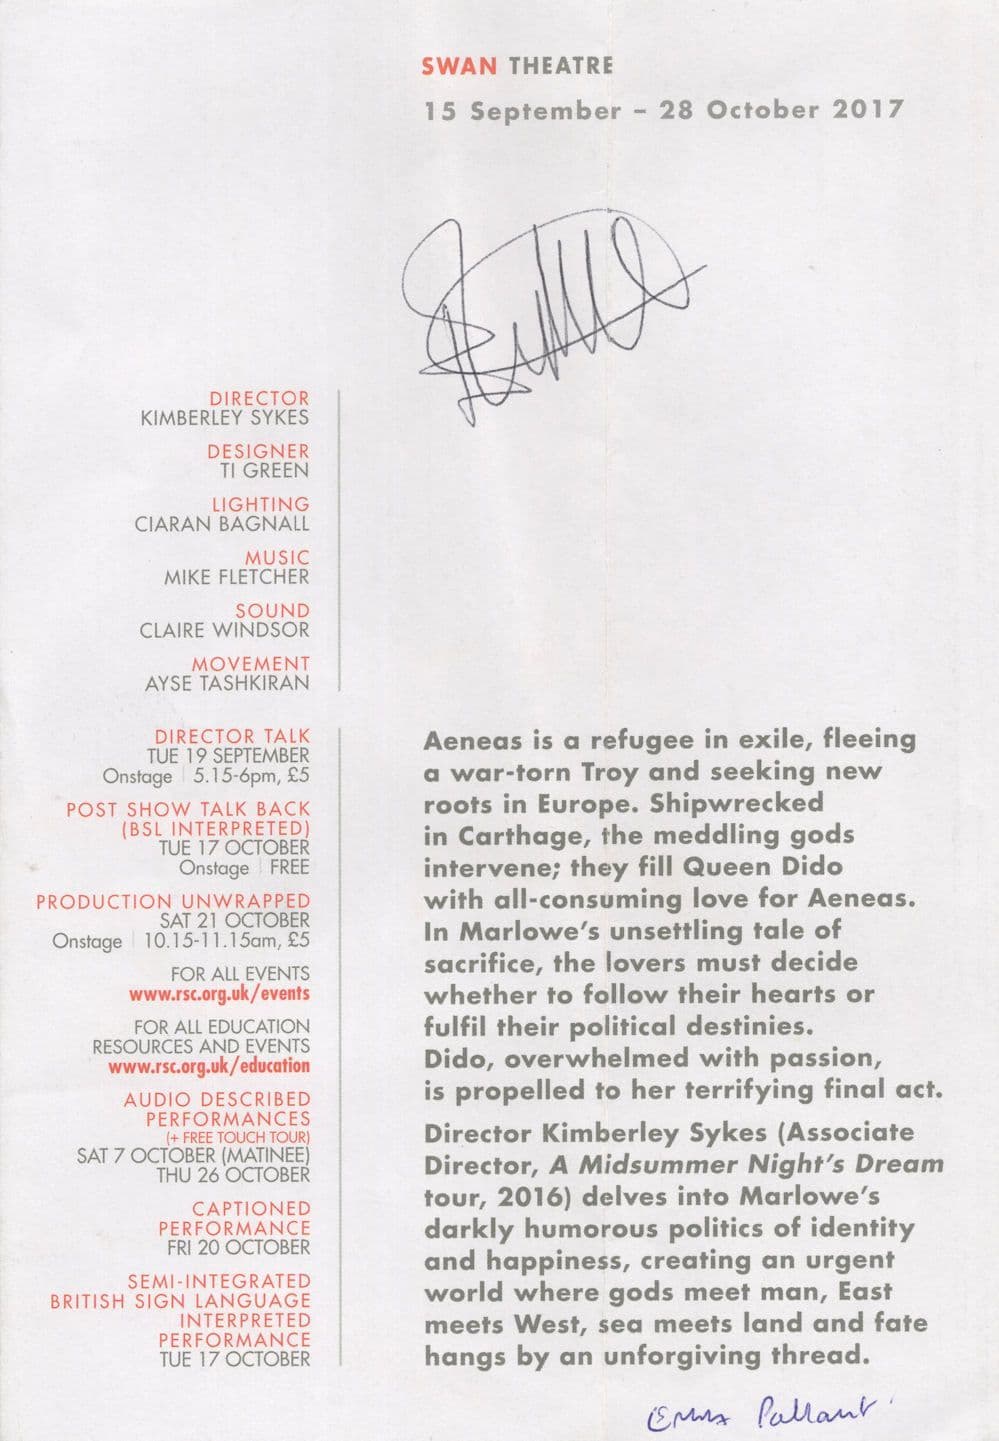 SWAN THEATRE
15 September – 28 October 2017
DIRECTOR
KIMBERLEY SYKES
DESIGNER
TI GREEN
LIGHTING
CIARAN BAGNALL
MUSIC
MIKE FLETCHER
SOUND
CLAIRE WINDSOR
MOVEMENT
AYSE TASHKIRAN
DIRECTOR TALK
TUE 19 SEPTEMBER
Onstage | 5.15-6pm, £5
POST SHOW TALK BACK
(BSL INTERPRETED)
TUE 17 OCTOBER
Onstage | FREE
PRODUCTION UNWRAPPED
SAT 21 OCTOBER
Onstage | 10.15-11.15am, £5
FOR ALL EVENTS
www.rsc.org.uk/events
FOR ALL EDUCATION
RESOURCES AND EVENTS
www.rsc.org.uk/education
AUDIO DESCRIBED
PERFORMANCES
(+ FREE TOUCH TOUR)
SAT 7 OCTOBER (MATINEE)
THU 26 OCTOBER
CAPTIONED
PERFORMANCE
FRI 20 OCTOBER
SEMI-INTEGRATED
BRITISH SIGN LANGUAGE
INTERPRETED
PERFORMANCE
TUE 17 OCTOBER
Aeneas is a refugee in exile, fleeing
a war-torn Troy and seeking new
roots in Europe. Shipwrecked
in Carthage, the meddling gods
intervene; they fill Queen Dido
with all-consuming love for Aeneas.
In Marlowe's unsettling tale of
sacrifice, the lovers must decide
whether to follow their hearts or
fulfil their political destinies.
Dido, overwhelmed with passion,
is propelled to her terrifying final act.
Director Kimberley Sykes (Associate
Director, A Midsummer Night's Dream
tour, 2016) delves into Marlowe's
darkly humorous politics of identity
and happiness, creating an urgent
world where gods meet man, East
meets West, sea meets land and fate
hangs by an unforgiving thread.
Emma Pallant